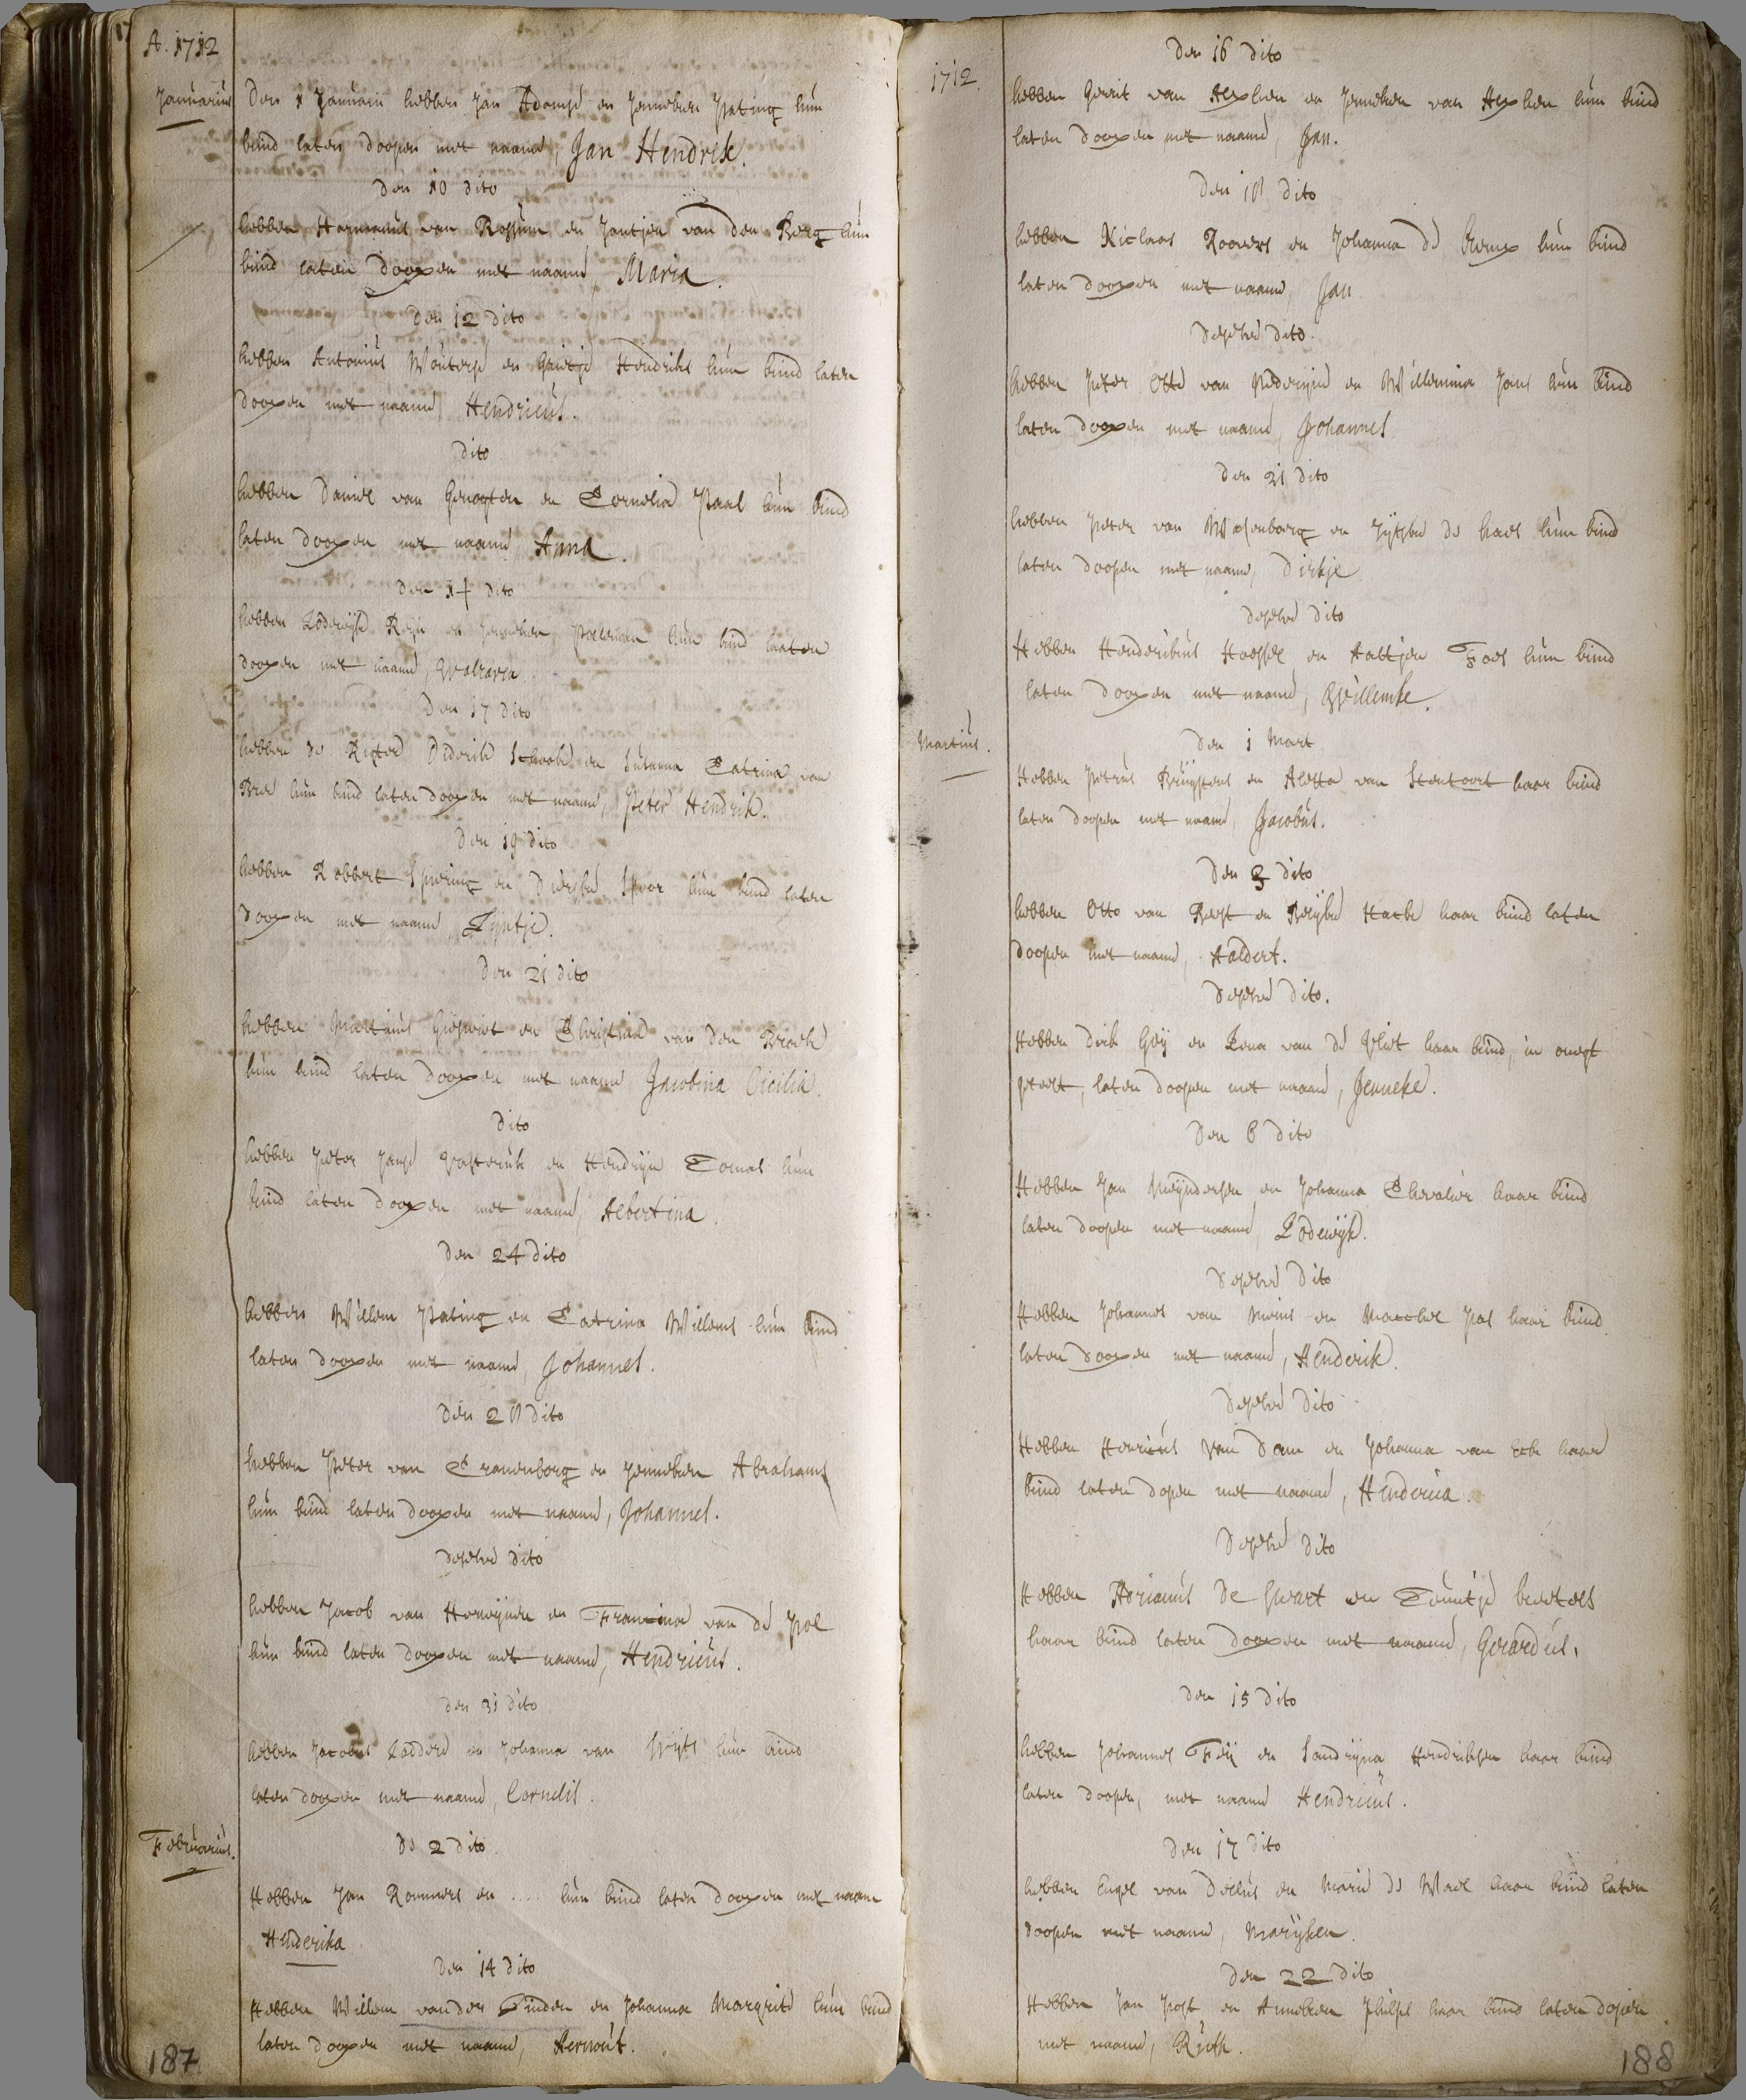 A. 1712
Januarius
Den 1 Januarii hebben Jan Adamse en Jenneken Pating hun
kind laten doopen met naame, Jan Hendrik.
Den 10 dito
hebben Harmanus van Rossum en Jantjen van den Berg hun
kind laten doopen met naame Maria.
den 12 dito
hebben Antonius Wouterse en Hendriks hun kind laten
doopen met naame Hendricus.
dito
hebben Daniel van en Cornelia Paal hun kind
laten doopen met naame Anna.
den 14 dito
hebben Lodewijk en Jenneken hun kind laaten
doopen met naame, Walraven
Den 17 dito
hebben de Diderik Schook en Susanna Catrina van
Bree hun kind laten doopen met naame, Peter Hendrik.
Den 19 dito
hebben Robbert Spiering en Spoor hun kind laten
doopen met naame, Lijntje.
Den 21 dito
hebben Martinus en Christina van den Broek
hun kind laten doopen met naame Jacobina Cicilia.
dito
hebben Peter Janse en Hendrijn hun
kind laten doopen met naame, Albertina.
den 24 dito
hebben Willem Pating en Catrina Willems hun kind
laten doopen met naame, Johannes.
den 28 dito
hebben Peter van Cranenborg en Jenneken Abrahams
hun kind laten doopen met naame, Johannes.
deselve dito
hebben Jacob van Herwijnen en Francina van de Pol
hun kind laten doopen met naame, Hendricus.
den 31 dito
hebben Jacobus en Johanna van hun kind
laten doopen met naame, Cornelis.
Februarius.
de 2 dito
Hebben Jan Rommers en .... hun kind laten doopen met naam
Henderika
den 14 dito
Hebben Willem van der Linden en Johanna Margrite hun kind
laten doopen met naame, Hernout.
187
1712
Den 16 dito
hebben Gerrit van Alphen en Jenneken van Alphen hun kind
laten doopen met naame, Jan.
Den 18 dito
hebben Niclaas Roovers en Johanna de hun kind
laten doopen met naame, Jan
deselve dito.
hebben Peter Otte van en Willemina Jans hun kind
laten doopen met naame, Johannes
den 21 dito
hebben Peter van en Sijtske de Haes hun kind
laten doopen met naame, Dirkje
deselve dito
Hebben Henderikus en Aaltjen Foes hun kind
laten doopen met naame, Willemke.
Martius.
Den 1 Mart
Hebben Petrus en Aletta van haar kind
laten doopen met naame, Jacobus.
Den 3 dito
hebben Otto van en haar kind laten
doopen met naame, Aaldert.
deselve dito.
Hebben Dirk en Lena van de Vliet haar kind, in onegt
geteelt, laten doopen met naame, Jenneke.
Den 6 dito
Hebben Jan Meijndersen en Johanna Chevalier haar kind
laten doopen met naame, Lodewijk.
deselve dito
Hebben Johannes van en haar kind
laten doopen met naame, Henderik.
deselve dito
Hebben Henricus van Dam en Johanna van Eck haar
kind laten dopen met naame, Henderica.
deselve dito
Hebben Adrianus de Swart en Teuntje
haar kind laten doopen met naame, Gerardus.
den 15 dito
hebben Johannes Feij en Sandrijna Hendriksen haar kind
laten doopen, met naame Hendricus.
den 17 dito
hebben Engel van en Marie de Wael haar kind laten
doopen met naame, Marijken.
den 22 dito
Hebben Jan Post en Anneken Philps haar kind laten dopen
met naame, Ruth.
188